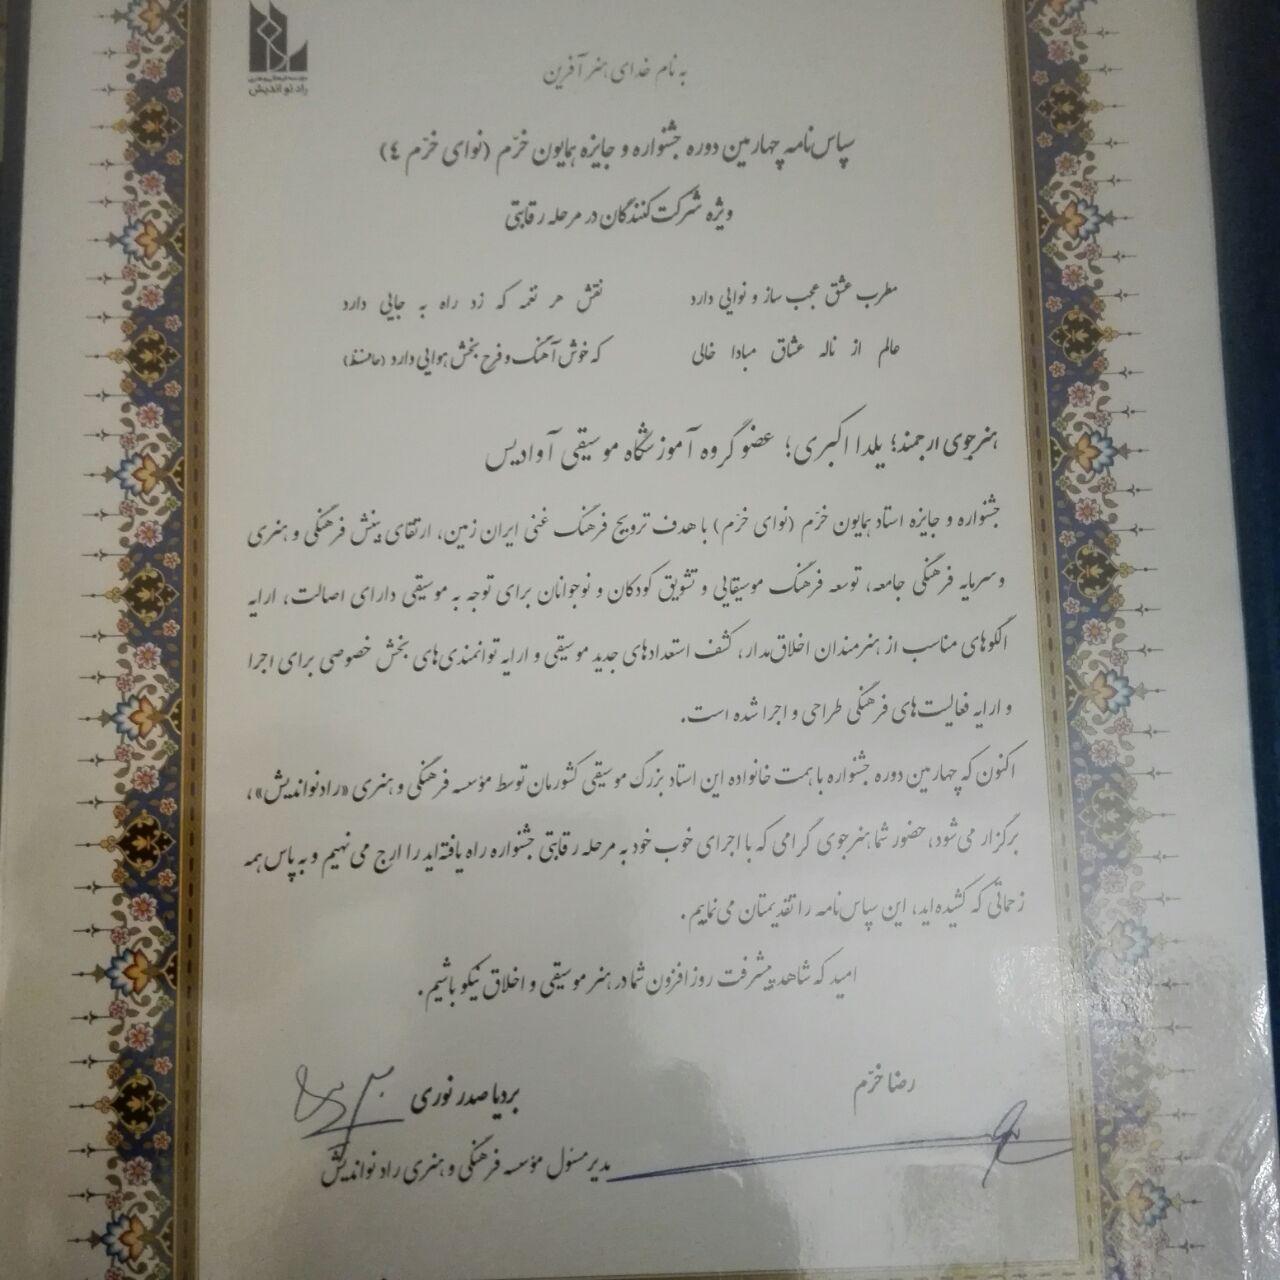 موسسه فرهنگی و هنری
راد نو اندیش
به نام خدای هنر آفرین
سپاس‌نامه چهارمین دوره جشنواره و جایزه همایون خرّم (نوای خرّم ۴)
ویژه شرکت‌کنندگان در مرحله رقابتی
مطرب عشق عجب ساز و نوایی دارد نقش هر نغمه که زد راه به جایی دارد
عالم از ناله عشاق مبادا خالی که خوش آهنگ و فرح بخش هوایی دارد (حافظ)
هنرجوی ارجمند؛ یلدا اکبری؛ عضو گروه آموزشگاه موسیقی آوادیس
جشنواره و جایزه استاد همایون خرّم (نوای خرّم) با هدف ترویج فرهنگ غنی ایران زمین، ارتقای بینش فرهنگی و هنری
و سرمایه فرهنگی جامعه، توسعه فرهنگ موسیقایی و تشویق کودکان و نوجوانان برای توجه به موسیقی دارای اصالت، ارایه
الگوهای مناسب از هنرمندان اخلاق‌مدار، کشف استعدادهای جدید موسیقی و ارایه توانمندی‌های بخش خصوصی برای اجرا
و ارایه فعالیت‌های فرهنگی طراحی و اجرا شده است.
اکنون که چهارمین دوره جشنواره با همت خانواده این استاد بزرگ موسیقی کشورمان توسط مؤسسه فرهنگی و هنری «راد نواندیش»،
برگزار می‌شود، حضور شما هنرجوی گرامی که با اجرای خوب خود به مرحله رقابتی جشنواره راه یافته‌اید را ارج می‌نهیم و به پاس همه
زحماتی که کشیده‌اید، این سپاس‌نامه را تقدیمتان می‌نماییم.
امید که شاهد پیشرفت روزافزون شما در هنر موسیقی و اخلاق نیکو باشیم.
رضا خرّم
بردیا صدر نوری
مدیر مسئول مؤسسه فرهنگی و هنری راد نواندیش